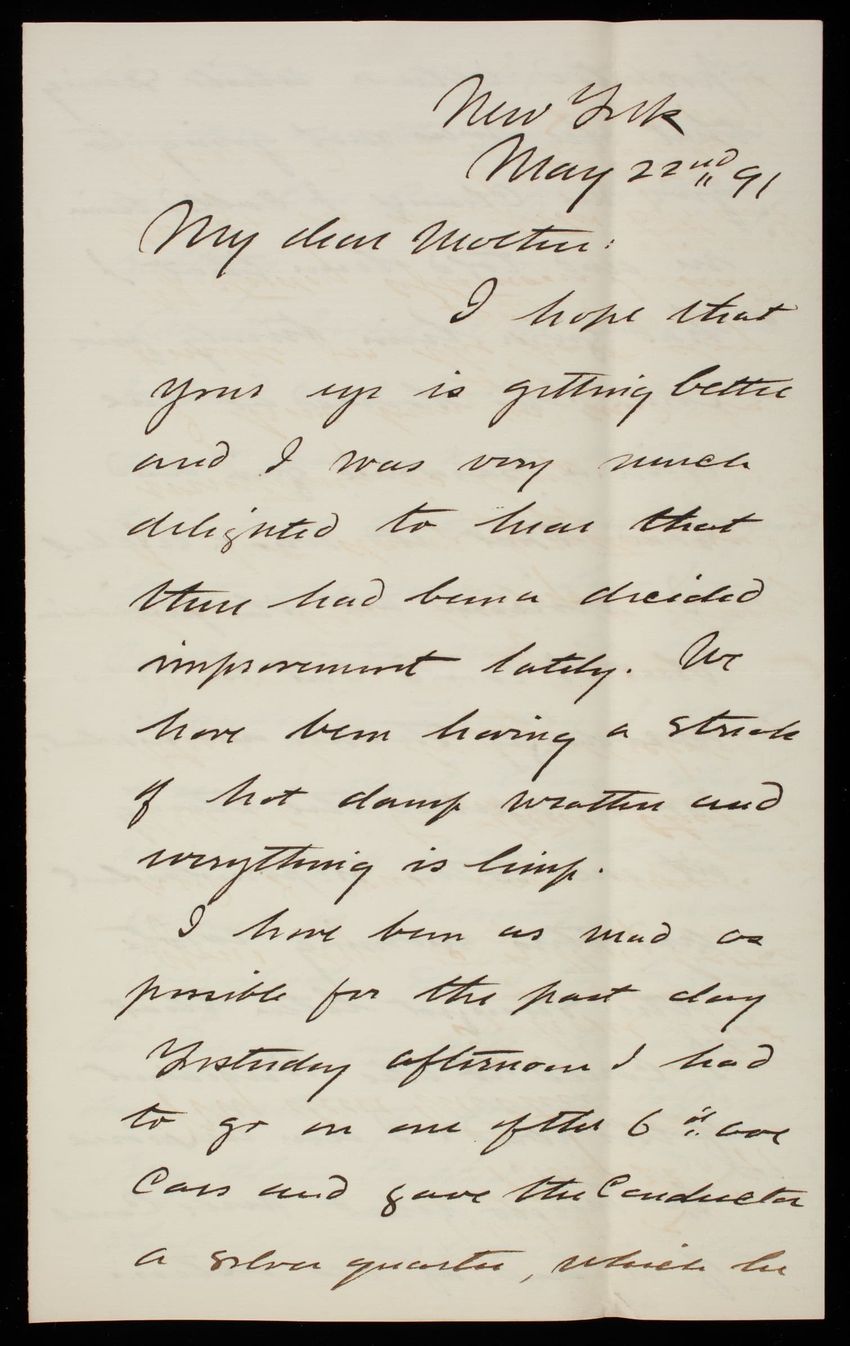 New York
May 22nd 91
My dear Mother:
I hope that
your eye is getting better
and I was very much
delighted to hear that
there had been a decided
improvement lately. We
have been having a streak
of hot damp weather and
everything is limp.
I have been as mad as
possible for the past day
Yesterday afternoon I had
to go on one of the 6th ave
Cars and gave the Conductor
a silver quarter, which he